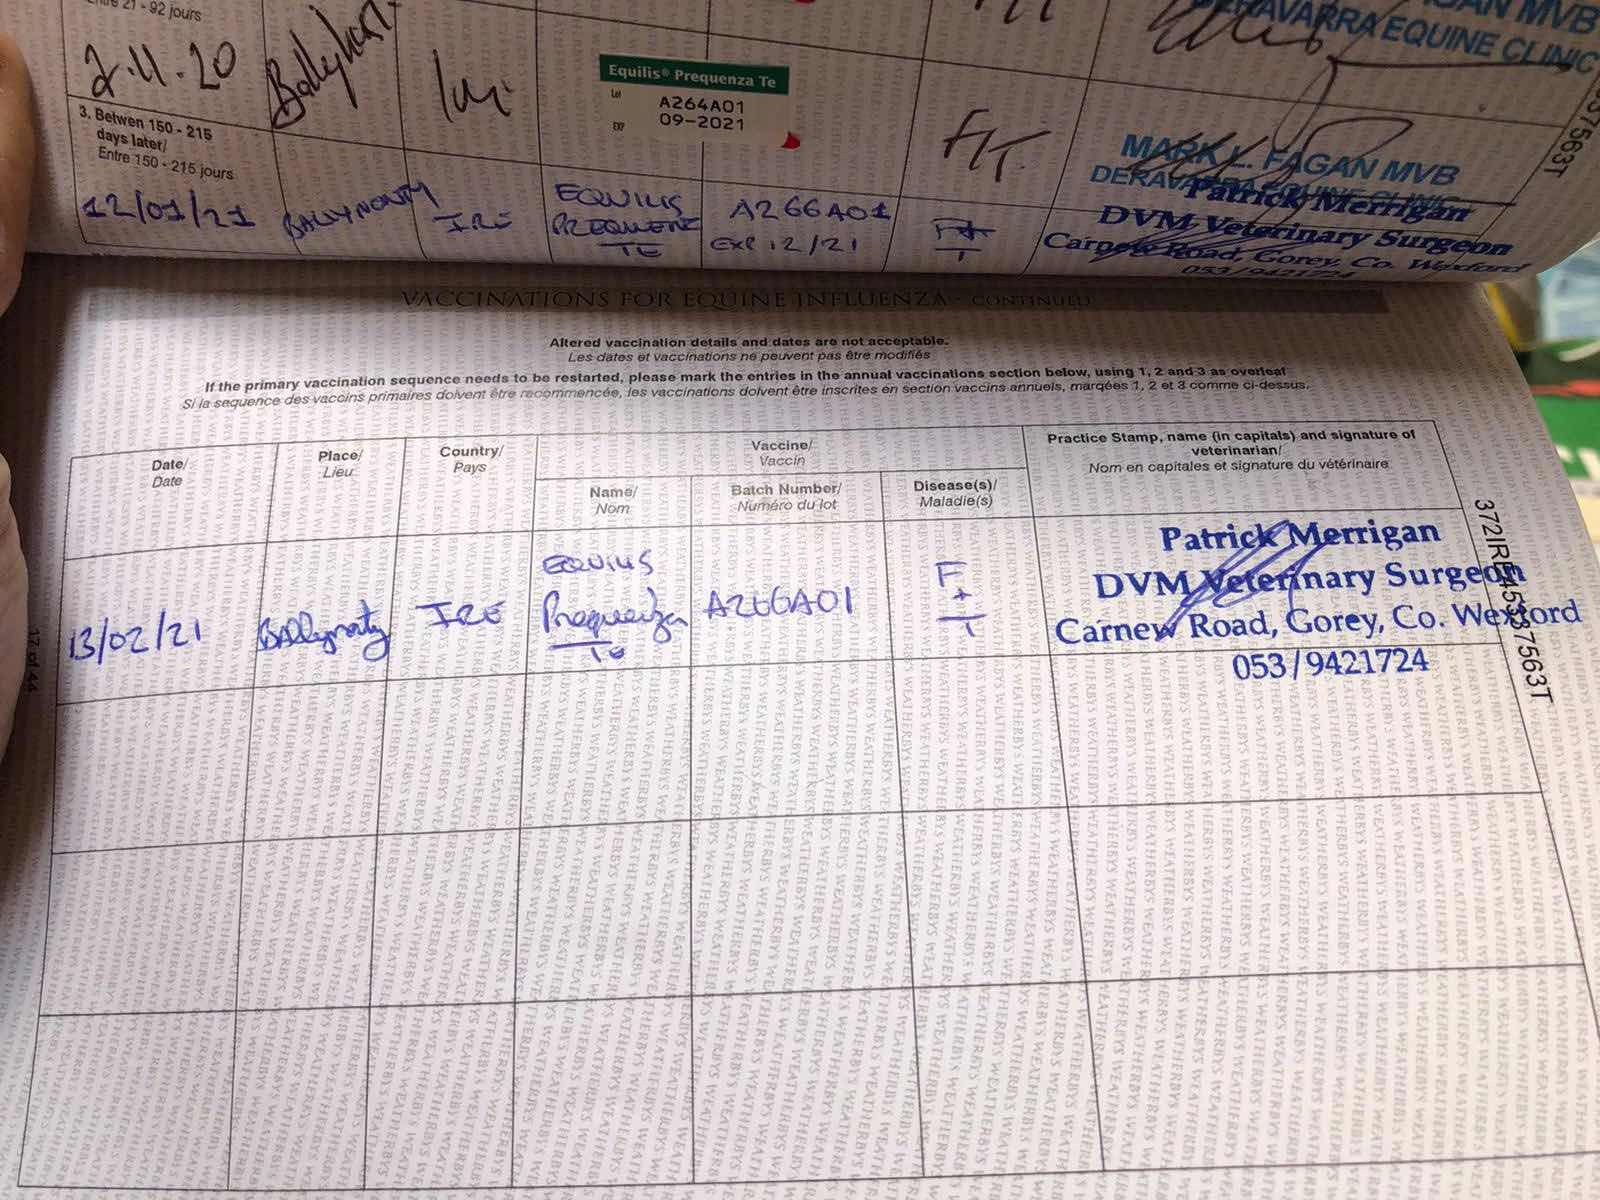 Entre 21 - 92 jours
GAN MVB
DERAVARRA EQUINE CLINIC
2.11.20
Equilis® Prequenza Te
Lot A264A01
EXP 09-2021
F/T.
MARK L. FAGAN MVB
DERAVARRA EQUINE CLINIC
3. Betwen 150 - 215
days later/
Entre 150 - 215 jours
12/01/21 BALLYNONTY IRE EQUILIS PREQUENZ TE A266A01 EXP 12/21 F+T
Patrick Merrigan
DVM Veterinary Surgeon
Carnew Road, Gorey, Co. Wexford
053/9421724
VACCINATIONS FOR EQUINE INFLUENZA - CONTINUED
Altered vaccination details and dates are not acceptable.
Les dates et vaccinations ne peuvent pas être modifiés
If the primary vaccination sequence needs to be restarted, please mark the entries in the annual vaccinations section below, using 1, 2 and 3 as overleaf
Si la sequence des vaccins primaires doivent être recommencée, les vaccinations doivent être inscrites en section vaccins annuels, marqées 1, 2 et 3 comme ci-dessus.
Date/
Date
Place/
Lieu
Country/
Pays
Vaccine/
Vaccin
Name/
Nom
Batch Number/
Numéro du lot
Disease(s)/
Maladie(s)
Practice Stamp, name (in capitals) and signature of
veterinarian/
Nom en capitales et signature du vétérinaire
13/02/21 Ballynonty IRE EQUILIS Prequenza Te A266A01 F + T
Patrick Merrigan
DVM Veterinary Surgeon
Carnew Road, Gorey, Co. Wexford
053/9421724
17 of 44